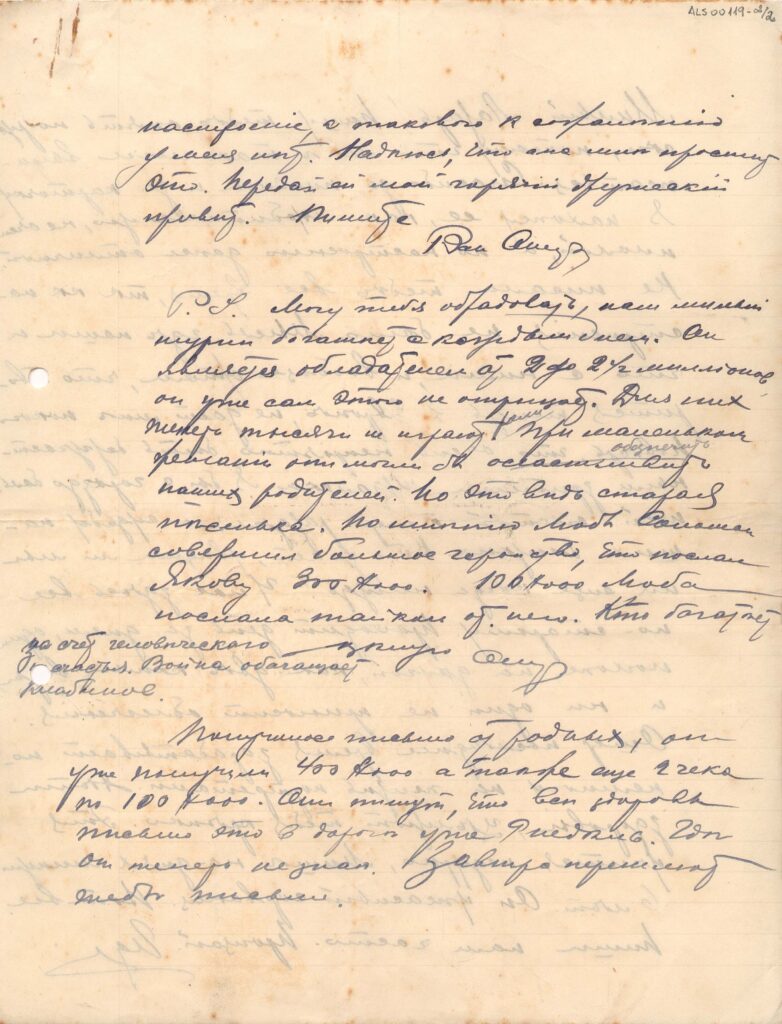 ALS00119-2/2
настроение, а такового к сожалению
у меня нет. Надеюсь, что она мне простит
это. Передай ей мой горячий дружеский
привет. Пишите
Ваш
P.S. Могу тебя обрадовать, наш милый
шурин богатеет с каждым днем. Он
является обладателем от 2 до 2½ миллионов,
он уже сам этого не отрицает. Для них
теперь тысячи не играют роли. При маленьком
желании они могли бы осчастливить
обеспечить
наших родителей. Но это ведь старая
песенька. По мнению Мобы Соломон
совершил большое геройство, что послал
Якову 300 Kron. 100 Kron Моба
послала тайком от него. Кто богатеет
за счет человеческого
несчастья. Война обогащает
Получилось письмо от родных, они
уже получили 400 Kron а также еще 2 чека
по 100 Kron. Они пишут, что все здоровы
письмо это в дороге уже 9 недель. Где
он теперь не знаю. Завтра перешлю
тебе письмо.